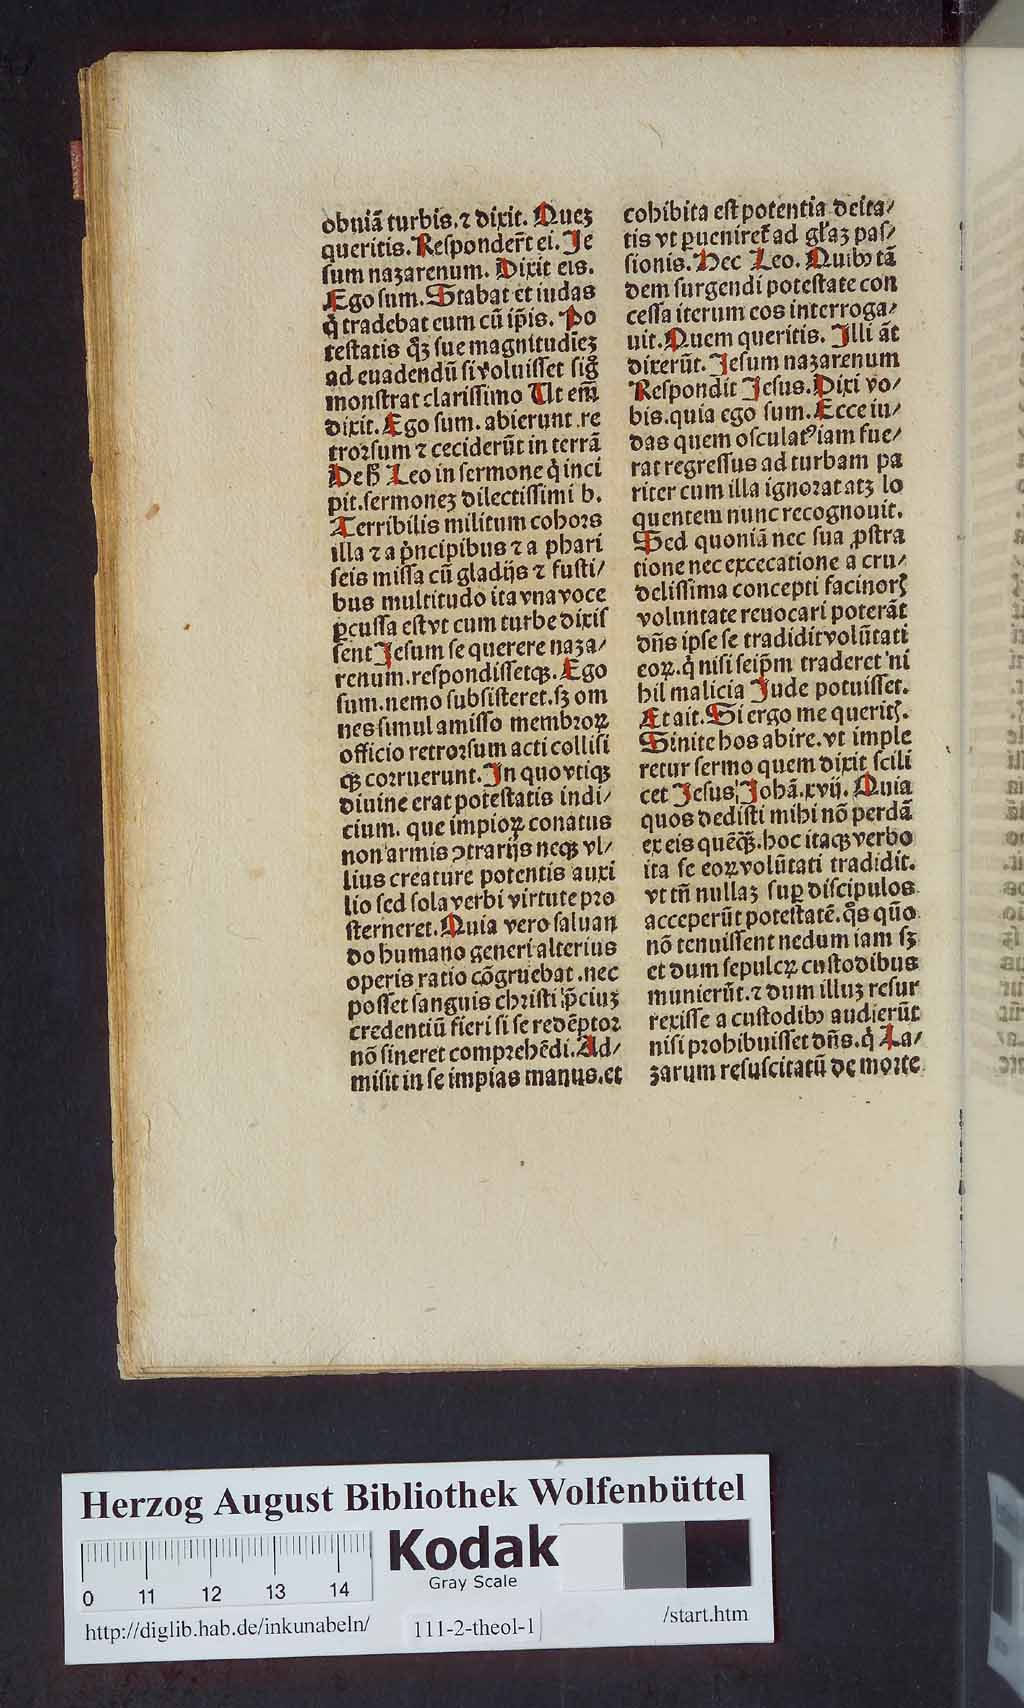 obuiā turbis. ⁊ dixit. Quez
queritis. Respondert̄ ei. Je
ſum nazarenum. Dixit eis.
Ego ſum. Stabat et iudas
q̇ tradebat eum cū ip̄is. Po
teſtatis q̄ꝫ ſue magnitudiez
ad euadendū ſi voluiſſet ſig̊
monſtrat clariſſimo Ut em̄
dixit. Ego ſum. abierunt re
trorſum ⁊ ceciderūt in terrā
De h̄ Leo in ſermone q̇ inci
pit. ſermonez dilectiſſimi b.
Terribilis militum cohors
illa ⁊ a pͥncipibus ⁊ a phari
ſeis miſſa cū gladijs ⁊ fuſti/
bus multitudo ita vna voce
ꝑcuſſa eſt vt cum turbe dixiſ
ſent Jeſum ſe querere naza/
renum. reſpondiſſetqꝫ. Ego
ſum. nemo ſubſiſteret. ſꝫ om
nes ſimul amiſſo membroꝝ
officio retrorſum acti colliſi
qꝫ corruerunt. In quo vtiqꝫ
diuine erat poteſtatis indi/
cium. que impioꝝ conatus
non armis ꝯtrarijs neqꝫ vl/
lius creature potentis auxi
lio ſed ſola verbi virtute pro
ſterneret. Quia vero ſaluan
do humano generi alterius
operis ratio cōgruebat. nec
poſſet ſanguis chriſti p̄ciuz
credentiū fieri ſi ſe redēptor
nō ſineret comprehēdi. Ad/
miſit in ſe impias manus. et
cohibita eſt potentia deita/
tis vt ꝑuenireƭ ad gl̄az paſ/
ſionis. Hec Leo. Quibꝰ tā
dem ſurgendi poteſtate con
ceſſa iterum eos interroga/
uit. Quem queritis. Illi āt
dixerūt. Jeſum nazarenum
Reſpondit Jeſus. Dixi vo/
bis. quia ego ſum. Ecce iu/
das quem oſculatꝰ iam fue/
rat regreſſus ad turbam pa
riter cum illa ignorat atꝫ lo
quentem nunc recognouit.
Sed quoniā nec ſua ꝓſtra
tione nec excecatione a cru/
deliſſima concepti facinorꝭ
voluntate reuocari poterāt
dn̄s ipſe ſe tradidit volūtati
eoꝝ. q̇ niſi ſeip̄m traderet ni
hil malicia Jude potuiſſet.
Et ait. Si ergo me queritꝭ.
Sinite hos abire. vt imple
retur ſermo quem dixit ſcili
cet Jeſus Johā. xvij. Quia
quos dediſti mihi nō perdā
ex eis quēqꝫ̄. hoc itaqꝫ verbo
ita ſe eoꝝ volūtati tradidit.
vt tn̄ nullaz ſuꝑ diſcipulos
acceperūt poteſtatē. q̊s qūo
nō tenuiſſent nedum iam ſꝫ
et dum ſepulcꝝ cuſtodibus
munierūt. ⁊ dum illuz reſur
rexiſſe a cuſtodibꝰ audierūt
niſi prohibuiſſet dn̄s. q̇ La/
zarum reſuſcitatū de morte
Herzog August Bibliothek Wolfenbüttel
Kodak
Gray Scale
0 11 12 13 14
http://diglib.hab.de/inkunabeln/
111-2-theol-1
/start.htm